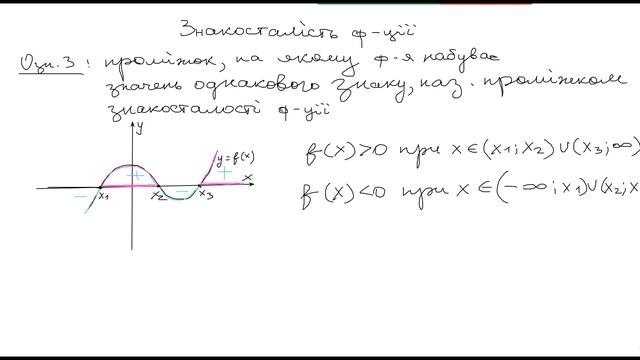 Знакосталість ф-ції
Озн.3: проміжок, на якому ф-я набуває
значень однакового знаку, наз. проміжком
знакосталості ф-ції
y
y=f(x)
+
+
x
−
x1
x2
−
x3
f(x)>0 при x∈(x1;x2)∪(x3;∞)
f(x)<0 при x∈(-∞;x1)∪(x2;x